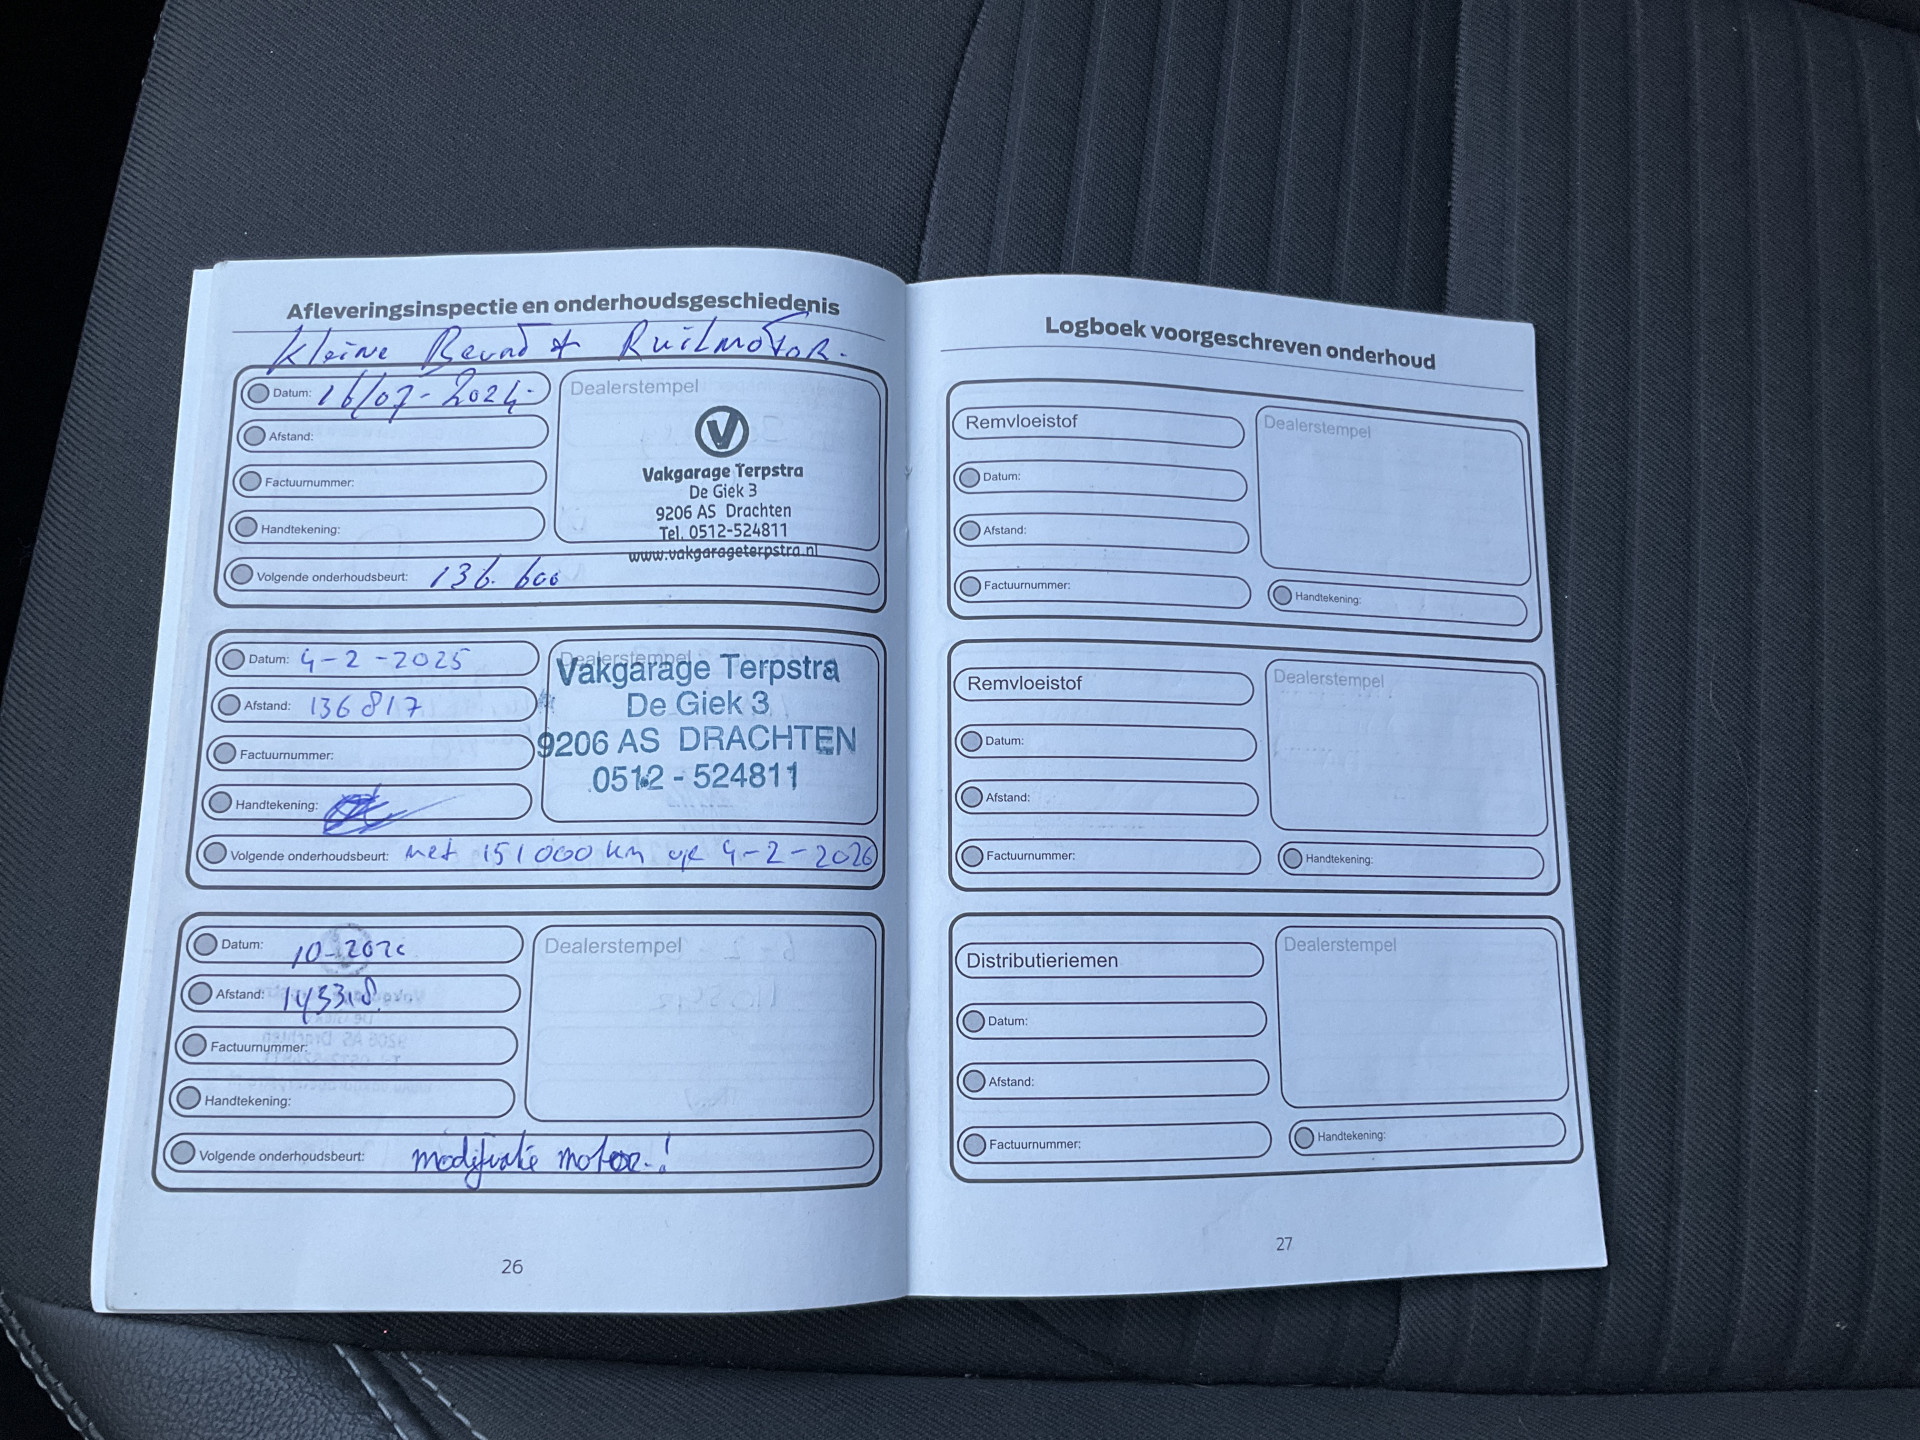 Afleveringsinspectie en onderhoudsgeschiedenis
Kleine Beurt + Ruilmotor.
Datum: 16/07-2024-
Dealerstempel
Afstand:
Factuurnummer:
Handtekening:
Vakgarage Terpstra
De Giek 3
9206 AS Drachten
Tel. 0512-524811
www.vakgarageterpstra.nl
Volgende onderhoudsbeurt: 136.600
Datum: 4-2-2025
Dealerstempel
Afstand: 136817
Factuurnummer:
Handtekening:
Vakgarage Terpstra
De Giek 3
9206 AS DRACHTEN
0512 - 524811
Volgende onderhoudsbeurt: met 151000 km op 4-2-2026
Datum:
Dealerstempel
Afstand:
Factuurnummer:
Handtekening:
Volgende onderhoudsbeurt: modificatie motor.!
26
Logboek voorgeschreven onderhoud
Remvloeistof
Dealerstempel
Datum:
Afstand:
Factuurnummer:
Handtekening:
Remvloeistof
Dealerstempel
Datum:
Afstand:
Factuurnummer:
Handtekening:
Distributieriemen
Dealerstempel
Datum:
Afstand:
Factuurnummer:
Handtekening:
27